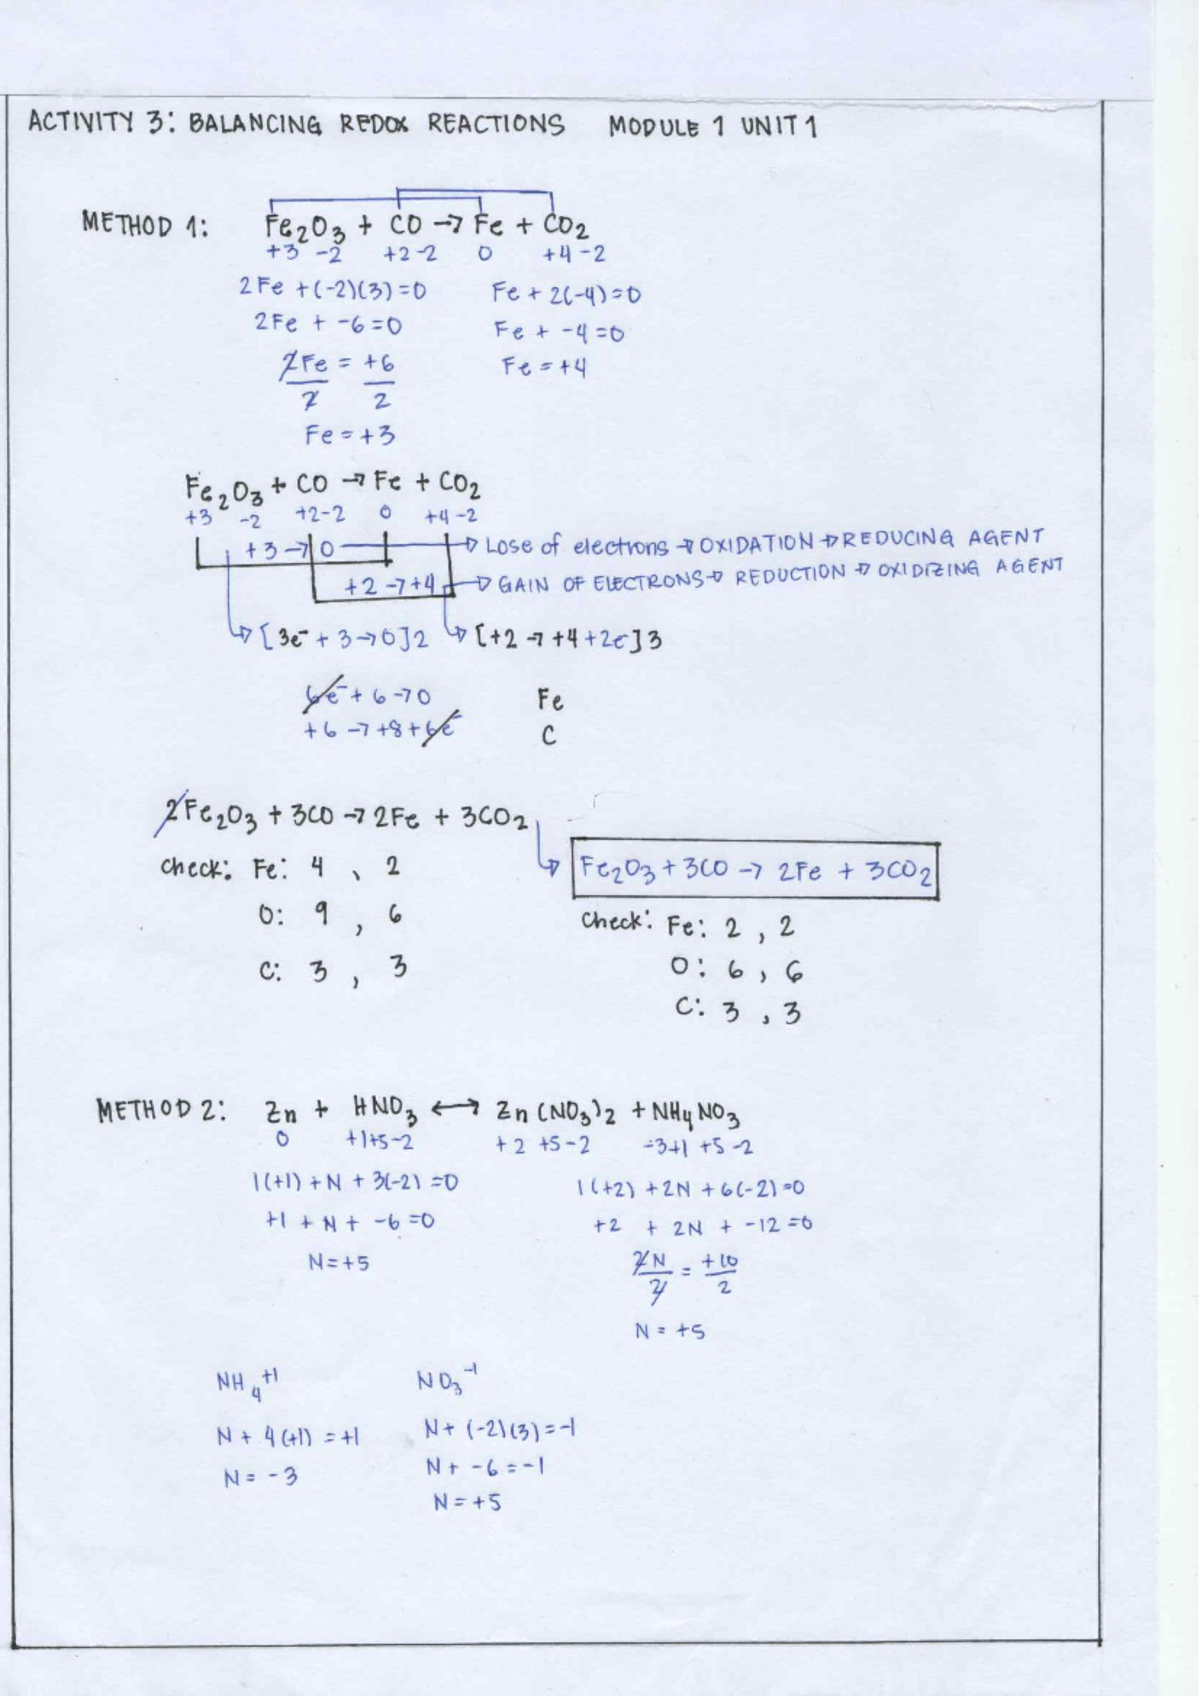 ACTIVITY 3: BALANCING REDOX REACTIONS MODULE 1 UNIT 1
METHOD 1: Fe₂O₃ + CO → Fe + CO₂
+3 -2 +2 -2 0 +4 -2
2Fe + (-2)(3) = 0 Fe + 2(-4) = 0
2Fe + -6 = 0 Fe + -4 = 0
2Fe/2 = +6/2 Fe = +4
Fe = +3
Fe₂O₃ + CO → Fe + CO₂
+3 -2 +2 -2 0 +4 -2
+3 → 0 → Lose of electrons → OXIDATION → REDUCING AGENT
+2 → +4 → GAIN OF ELECTRONS → REDUCTION → OXIDIZING AGENT
[3e⁻ + 3 → 0]2 [+2 → +4 + 2e⁻]3
6e⁻ + 6 → 0 Fe
+6 → +8 + 6e⁻ C
2Fe₂O₃ + 3CO → 2Fe + 3CO₂
Fe₂O₃ + 3CO → 2Fe + 3CO₂
Check: Fe: 4 , 2
O: 9 , 6
C: 3 , 3
Check: Fe: 2 , 2
O: 6 , 6
C: 3 , 3
METHOD 2: Zn + HNO₃ ↔ Zn(NO₃)₂ + NH₄NO₃
0 +1+5-2 +2 +5-2 -3+1 +5-2
1(+1) + N + 3(-2) = 0 1(+2) + 2N + 6(-2) = 0
+1 + N + -6 = 0 +2 + 2N + -12 = 0
N = +5 2N/2 = +10/2
N = +5
NH₄⁺¹ NO₃⁻¹
N + 4(+1) = +1 N + (-2)(3) = -1
N = -3 N + -6 = -1
N = +5